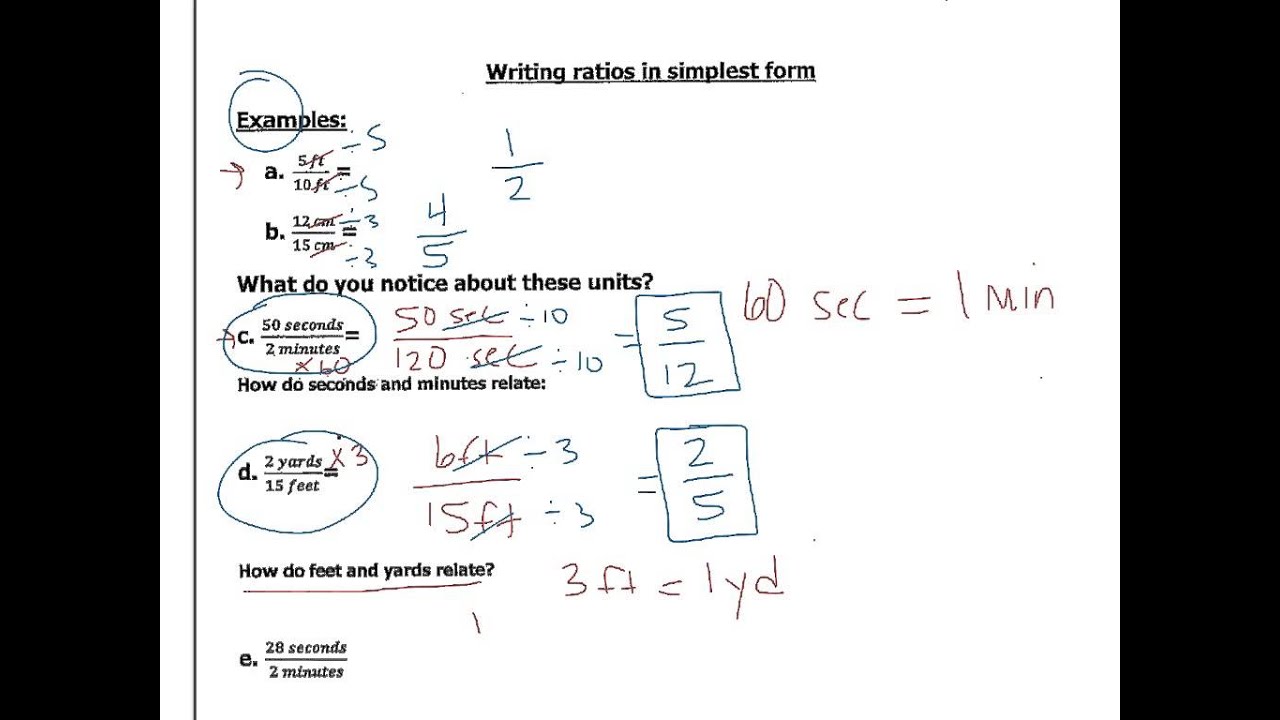 Writing ratios in simplest form
Examples:
a. 5ft/10 ft = ÷5 ÷5 1/2
b. 12 cm/15 cm = ÷3 ÷3 4/5
What do you notice about these units?
c. 50 seconds/2 minutes = ×60 50 sec/120 sec ÷10 ÷10 = 5/12 60 sec = 1 min
How do seconds and minutes relate:
d. 2 yards/15 feet = ×3 6ft/15ft ÷3 ÷3 = 2/5
How do feet and yards relate? 3 ft = 1 yd
e. 28 seconds/2 minutes